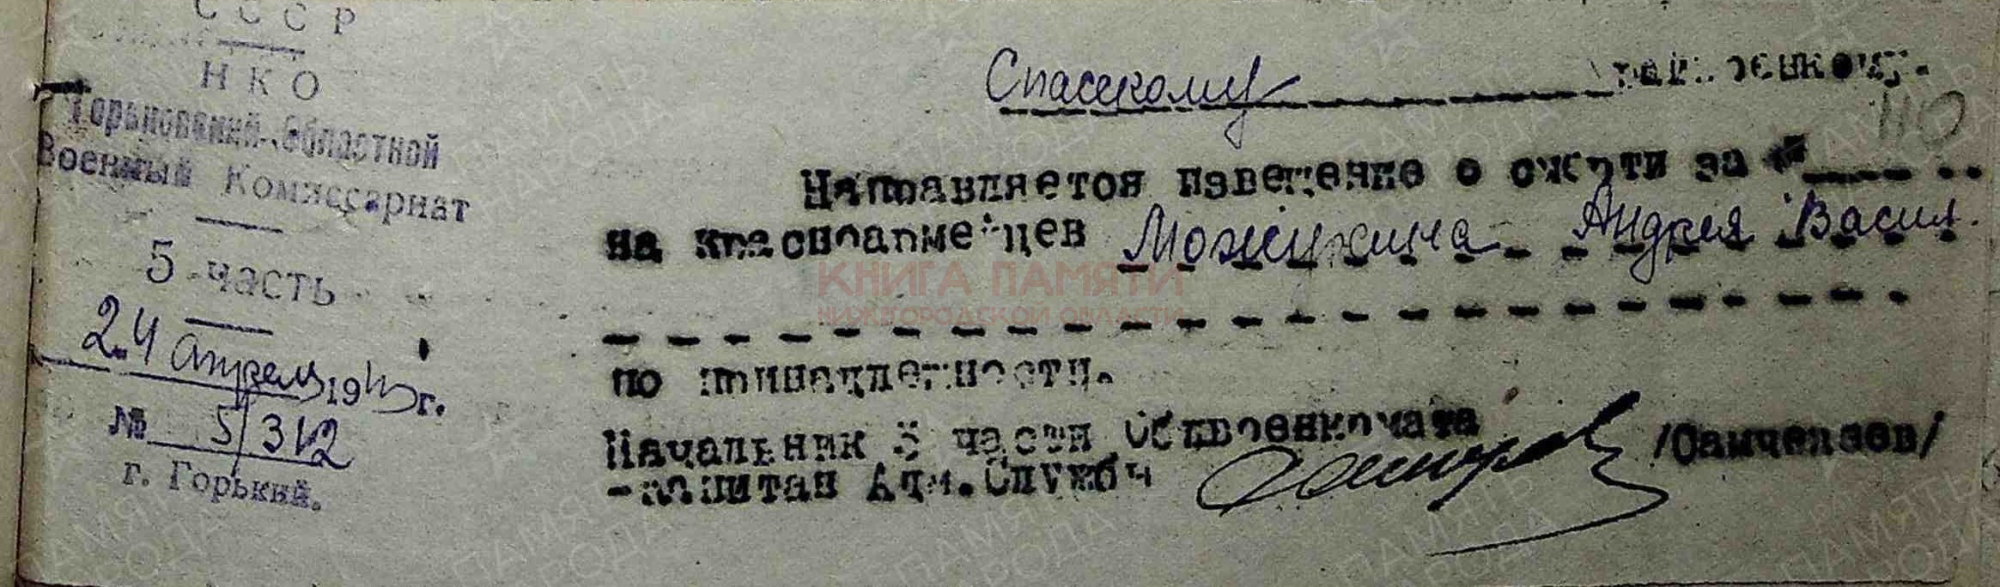 СССР
НКО
Горьковский Областной
Военный Комиссариат
5 часть
24 апреля 1943 г.
№ 5/312
г. Горький.
Спасскому райвоенкому.
110
Направляется извещение о смерти за №
на красноармейцев Можихина Андрея Васил.
по принадлежности.
Начальник 5 части Облвоенкомата
-капитан Адм.Службы
КНИГА ПАМЯТИ
НИЖЕГОРОДСКОЙ ОБЛАСТИ